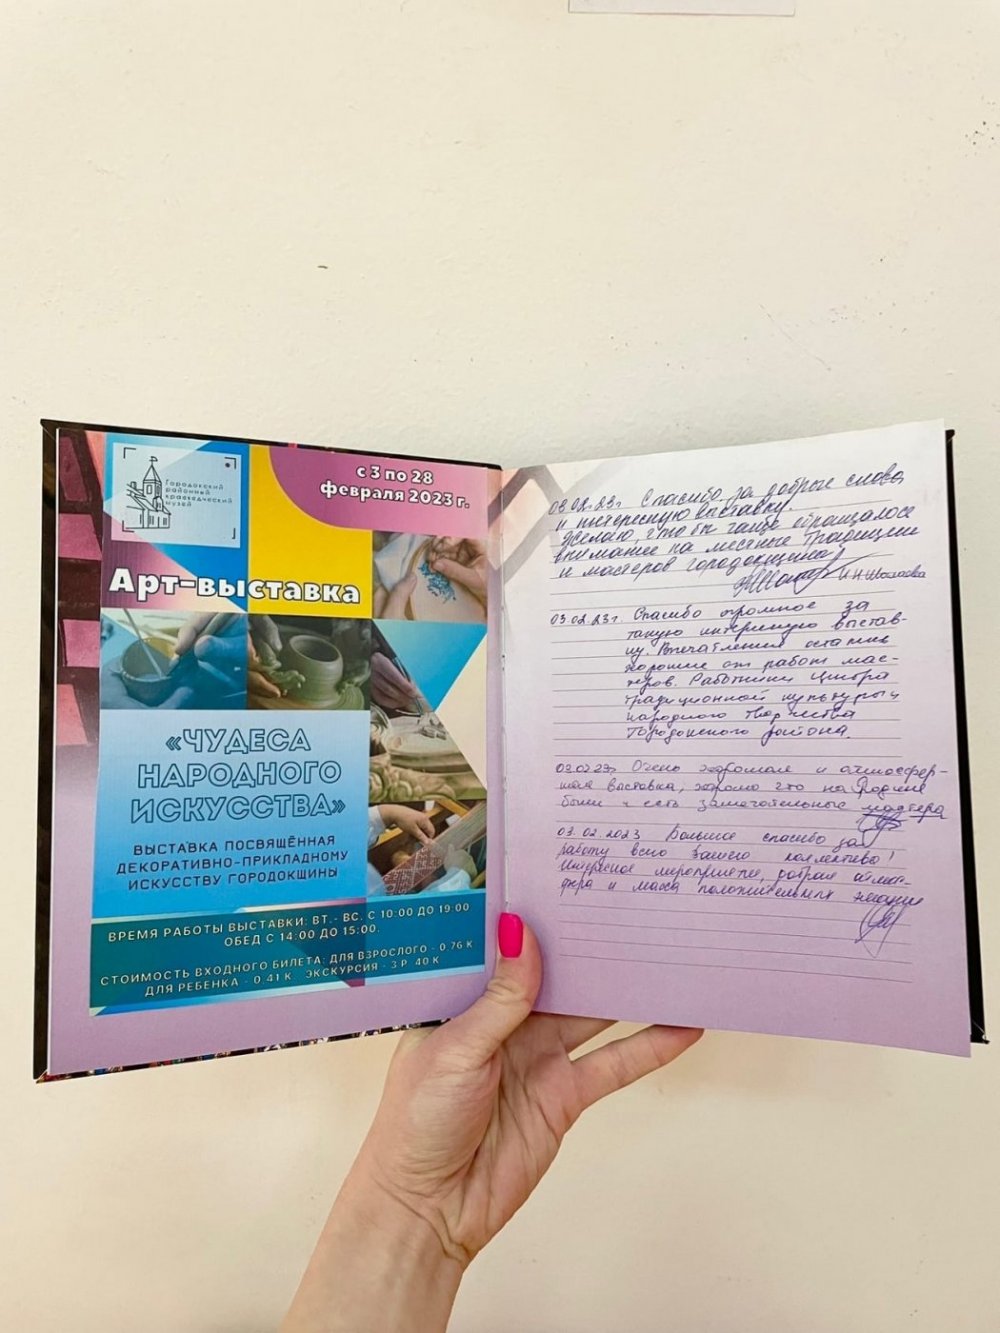 Городокский
районный
краеведческий
музей
с 3 по 28
февраля 2023 г.
Арт-выставка
«ЧУДЕСА
НАРОДНОГО
ИСКУССТВА»
ВЫСТАВКА ПОСВЯЩЁННАЯ
ДЕКОРАТИВНО-ПРИКЛАДНОМУ
ИСКУССТВУ ГОРОДОКЩИНЫ
ВРЕМЯ РАБОТЫ ВЫСТАВКИ: ВТ.- ВС. С 10:00 ДО 19:00
ОБЕД С 14:00 ДО 15:00.
СТОИМОСТЬ ВХОДНОГО БИЛЕТА: ДЛЯ ВЗРОСЛОГО - 0,76 К
ДЛЯ РЕБЕНКА - 0,41 К. ЭКСКУРСИЯ - 3 Р. 40 К
03.02.23г. Спасибо за добрые слова
и интересную выставку.
Желаю, что бы чаще обращалось
внимание на местные традиции
и мастеров городокщины!
03.02.23г. Спасибо огромное за
такую интересную выстав-
ку. Впечатления остались
хорошие от работ мас-
теров. Работники Центра
традиционной культуры и
народного творчества
Городокского района.
03.02.23г Очень хорошая и атмосфер-
ная выставка, хорошо что на Родине
были и есть замечательные мастера
03.02.2023 Большое спасибо за
работу всего вашего коллектива!
Интересное мероприятие, добрая атмос-
фера и масса положительных эмоций